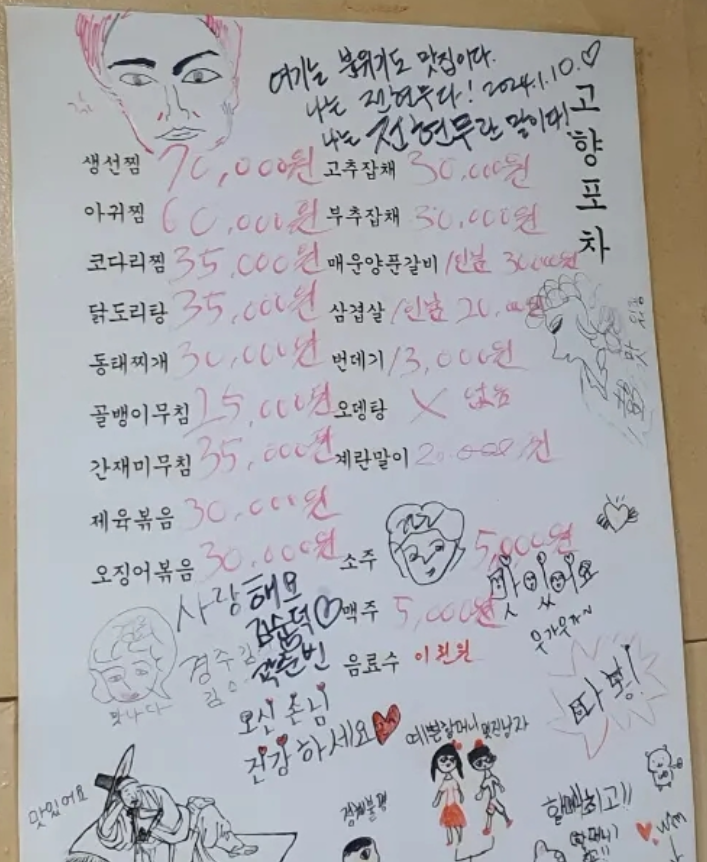 여기는 분위기도 맛집이다.
나는 전현무다! 2024.1.10.♡
나는 전현무란 말이다!
고향포차
생선찜 70,000원 고추잡채 30,000원
아귀찜 60,000원 부추잡채 30,000원
코다리찜 35,000원 매운양푼갈비 /인분 30,000원
닭도리탕 35,000원 삼겹살 /인분 20,000원
동태찌개 30,000원 번데기 /3,000원
골뱅이무침 25,000원 오뎅탕 X 없음
간재미무침 35,000원 계란말이 20,000원
제육볶음 30,000원
오징어볶음 30,000원 소주 5,000원
맛있어요
웃가웃자~
사랑해요
김순덕♡ 맥주 5,000원
곽준빈 음료수 이천원
경주김
맛나다
오신 손님
건강하세요
따봉!
예쁜할머니 멋진남자
맛있어요